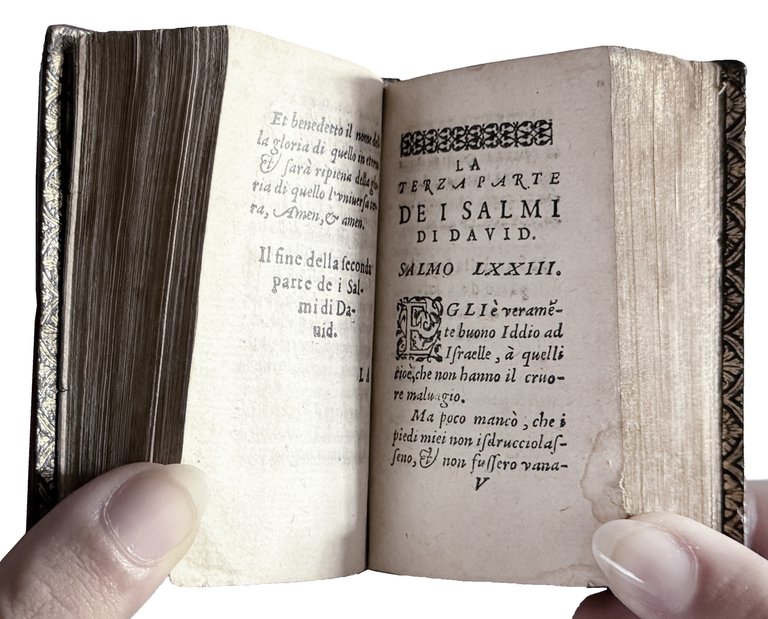 Et benedetto il nome del-
la gloria di quello in eterno
& sarà ripiena della glo-
ria di quello l'vniuersa ter-
ra, Amen, & amen.
Il fine della ſeconda
parte de i Sal-
mi di Da-
uid.
LA
LA
TERZA PARTE
DE I SALMI
DI DAVID.
SALMO LXXIII.
EGLI è veramē-
te buono Iddio ad
Iſraelle, à quelli
cioè, che non hanno il cruo-
re maluagio.
Ma poco mancò, che i
piedi miei non iſdrucciolaſ-
ſeno, & non fuſſero vana-
V